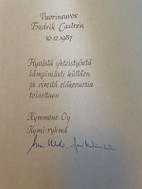 Vuorineuvos
Fredrik Castren
10.12.1987
Hyvästä yhteistyöstä
lämpimästi kiittäen
ja vireitä eläkevuosia
toivottaen
Kymmene Oy
Kymi-ryhmä